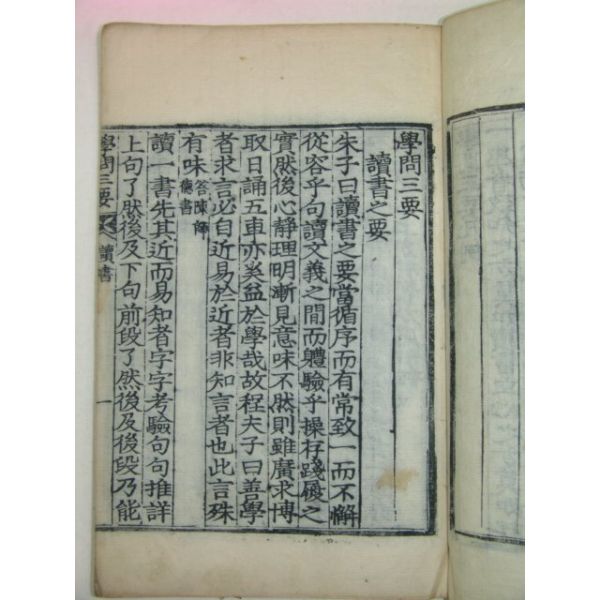 學問三要
讀書之要
朱子曰讀書之要當循序而有常致一而不懈
從容乎句讀文義之間而軆驗乎操存踐履之
實然後心靜理明漸見意味不然則雖廣求博
取日誦五車亦奚益於學哉故程夫子曰善學
者求言必自近易於近者非知言者也此言殊
有味答陳師德書
讀一書先其近而易知者字字考驗句句推詳
上句了然後及下句前段了然後及後段乃能
學問三要 讀書 一